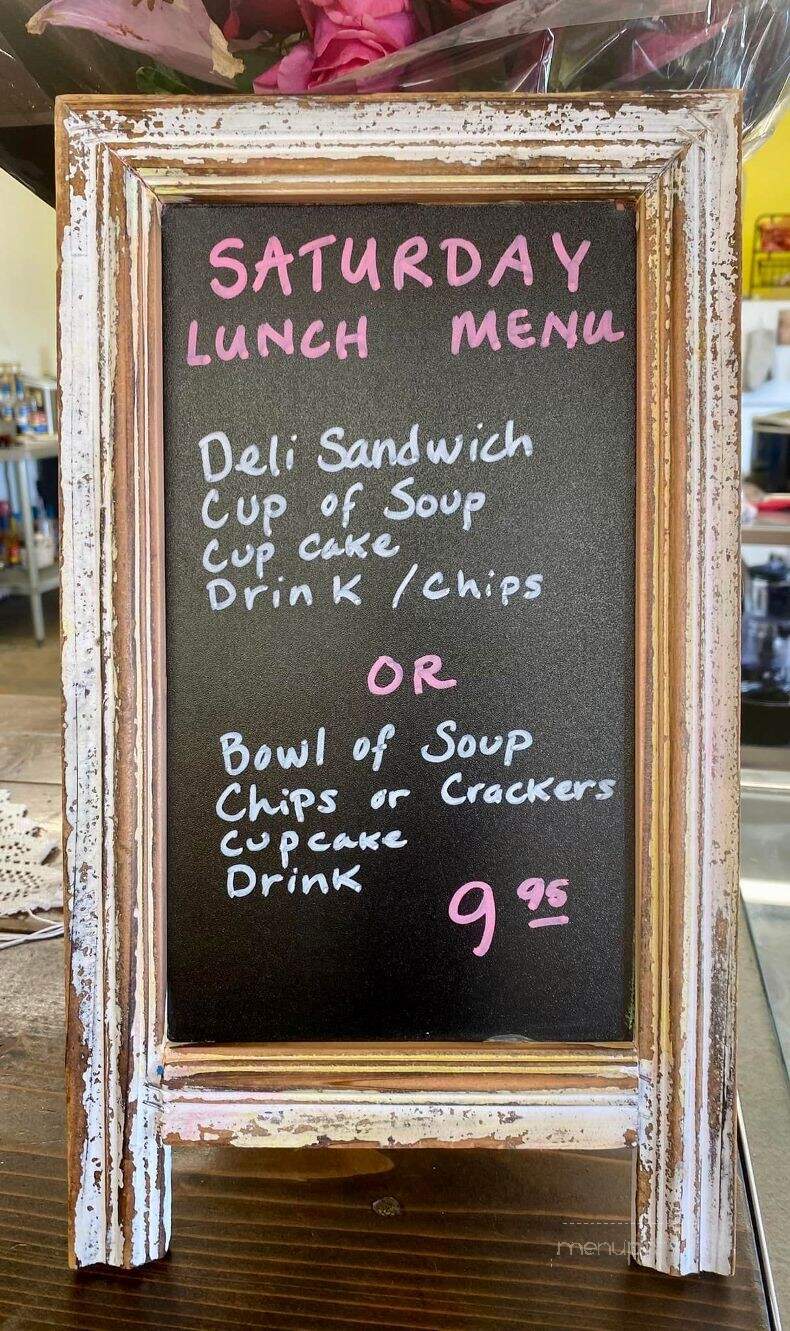 SATURDAY
LUNCH MENU
Deli Sandwich
Cup of Soup
Cup Cake
Drink / Chips
OR
Bowl of Soup
Chips or Crackers
Cupcake
Drink
9 95